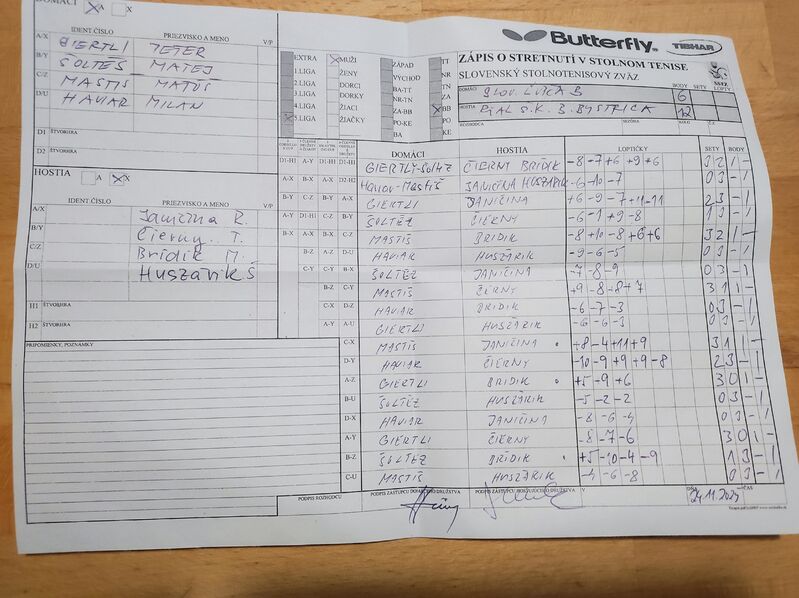 DOMÁCI A X
IDENT ČÍSLO PRIEZVISKO A MENO V/P
A/X GIERTLI PETER
B/Y ŠOLTÉS MATEJ
C/Z MASTIŠ MATÚŠ
D/U HAVIAR MILAN
D1 ŠTVORHRA
D2
HOSTIA A X
IDENT ČÍSLO PRIEZVISKO A MENO V/P
A/X Janičina R.
B/Y Čierny T.
C/Z Bridik M.
D/U Huszárik Š
H1 ŠTVORHRA
H2
PRIPOMIENKY, POZNÁMKY
EXTRA MUŽI ZÁPAD TT
1.LIGA ŽENY VÝCHOD NR
2.LIGA DORCI BA-TT TN
3.LIGA DORKY NR-TN ZA
4.LIGA ŽIACI ZA-BB BB
5.LIGA ŽIAČKY PO-KE PO
BA KE
Butterfly TIBHAR
ZÁPIS O STRETNUTÍ V STOLNOM TENISE
SLOVENSKÝ STOLNOTENISOVÝ ZVÄZ
SSTZ
DOMÁCI SLOV. ĽUPČA B BODY 6 SETY LOPTY
HOSTIA REAL S.K. B. BYSTRICA 12
ROZHODCA SEZÓNA KOLO Č.Z
DOMÁCI HOSTIA LOPTIČKY SETY BODY
D1-H1 A-Y D1-H1 D1-H1 GIERTLI-ŠOLTÉZ ČIERNY BRIDIK -8 -7 +6 +9 +6 3 2 1 -
A-X B-X A-X D2-H2 HAVIAR-MASTIŠ JANIČINA HUSZÁRIK -6 -10 -7 0 3 - 1
B-Y C-Z B-Y A-X GIERTLI JANIČINA +6 -9 -7 +11 -11 2 3 - 1
A-Y D1-H1 C-Z B-Y ŠOLTÉZ ČIERNY -6 -1 +9 -8 1 3 - 1
B-X A-X B-X C-Z MASTIŠ BRIDIK -8 +10 -8 +6 +6 3 2 1 -
B-Z A-Z D-U HAVIAR HUSZÁRIK -9 -6 -5 0 3 - 1
C-Y C-Y B-X ŠOLTÉZ JANIČINA -7 -8 -9 0 3 - 1
B-Z C-Y MASTIŠ ČIERNY +9 -8 -8 +7 3 1 1 -
C-X D-Z HAVIAR BRIDIK -6 -7 -3 0 3 - 1
A-Y A-U GIERTLI HUSZÁRIK -6 -6 -3 0 3 - 1
C-X MASTIŠ JANIČINA +8 -4 +11 +9 3 1 1 -
D-Y HAVIAR ČIERNY -10 -9 +9 +9 -8 2 3 - 1
A-Z GIERTLI BRIDIK +5 -9 +6 3 0 1 -
B-U ŠOLTÉZ HUSZÁRIK -5 -2 -2 0 3 - 1
D-X HAVIAR JANIČINA -8 -6 -4 0 3 - 1
A-Y GIERTLI ČIERNY -8 -7 -6 3 0 1 -
B-Z ŠOLTÉZ BRIDIK +5 -10 -4 -9 1 3 - 1
C-U MASTIŠ HUSZÁRIK -4 -6 -8 0 3 - 1
PODPIS ROZHODCU PODPIS ZÁSTUPCU DOMÁCEHO DRUŽSTVA PODPIS ZÁSTUPCU HOSŤUJÚCEHO DRUŽSTVA V DŇA 24.11.2024 ČAS